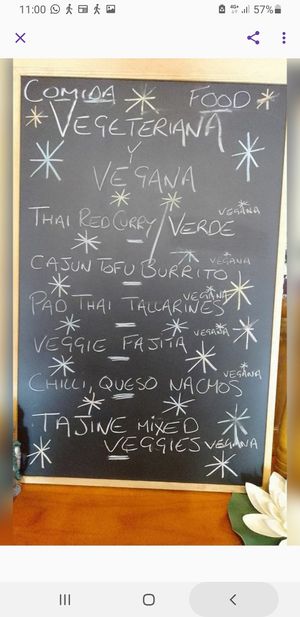 11:00
4G+
57%
COMIDA FOOD
VEGETERIANA
Y
VEGANA
THAI RED CURRY/VERDE VEGANA
CAJUN TOFU BURRITO VEGANA
PAD THAI TALLARINES VEGANA
VEGGIE FAJITA VEGANA
CHILLI, QUESO NACHOS VEGANA
TAJINE MIXED
VEGGIES VEGANA